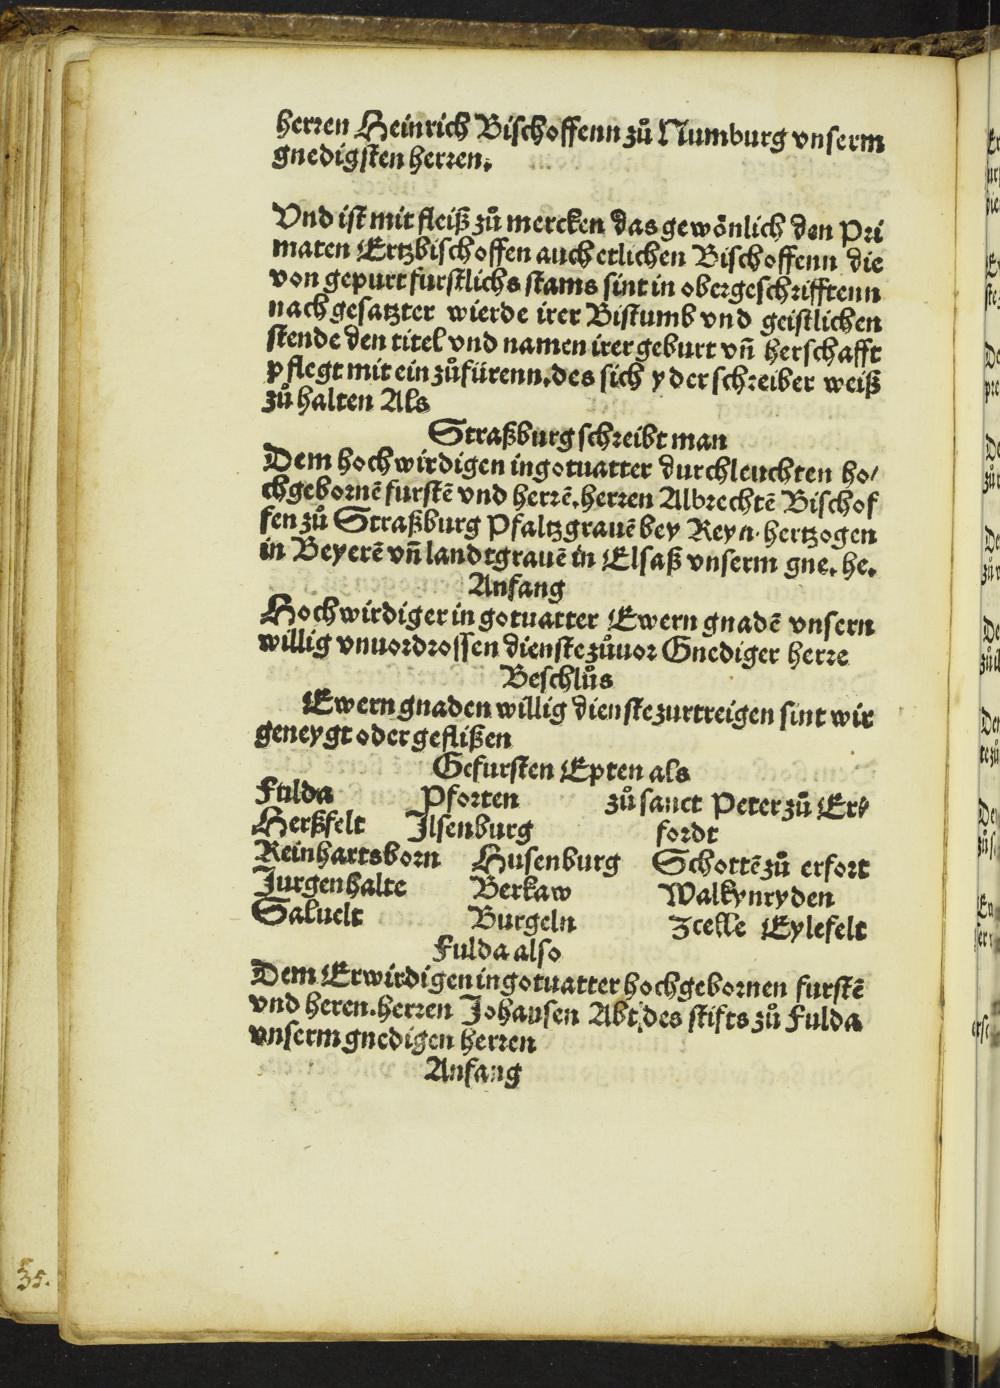 herren Heinrich Bischoffenn zů Numburg vnserm
gnedigsten herren.
Vnd ist mit fleiß zů mercken das gewönlich den Pri
maten Ertzbischoffen auch etlichen Bischoffenn die
von gepurt furstlichs stams sint in obergeschrifftenn
nach gesatzter wierde irer Bistumb vnd geistlichen
stende den titel vnd namen irer geburt vñ herschafft
pflegt mit ein zůfürenn. des sich yder schreiber weiß
zů halten Als
Straßburg schreibt man
Dem hochwirdigen in gotuatter durchleuchten ho/
chgebornē furstē vnd herrē. herren Albrechtē Bischof
fen zů Straßburg Pfaltzgrauē bey Reyn. hertzogen
in Beyerē vñ landtgrauē in Elsaß vnserm gne. he.
Anfang
Hochwirdiger in gotuatter Ewern gnadē vnsern
willig vnuordrossen dienste zůuor Gnediger herre
Beschlůs
Ewern gnaden willig dienste zurtreigen sint wir
geneygt oder geflißen
Gefursten Epten als
Fulda Pforten zů sanct Peter zů Er/
Herßfelt Ilsenburg fordt
Reinhartsborn Husenburg Schottē zů erfort
Jurgenhalte Berkaw Walkynryden
Saluelt Burgeln Zcelle Eylefelt
Fulda also
Dem Erwirdigen in gotuatter hochgebornen furstē
vnd heren. herren Johansen Abt des stifts zů Fulda
vnserm gnedigen herren
Anfang
35.